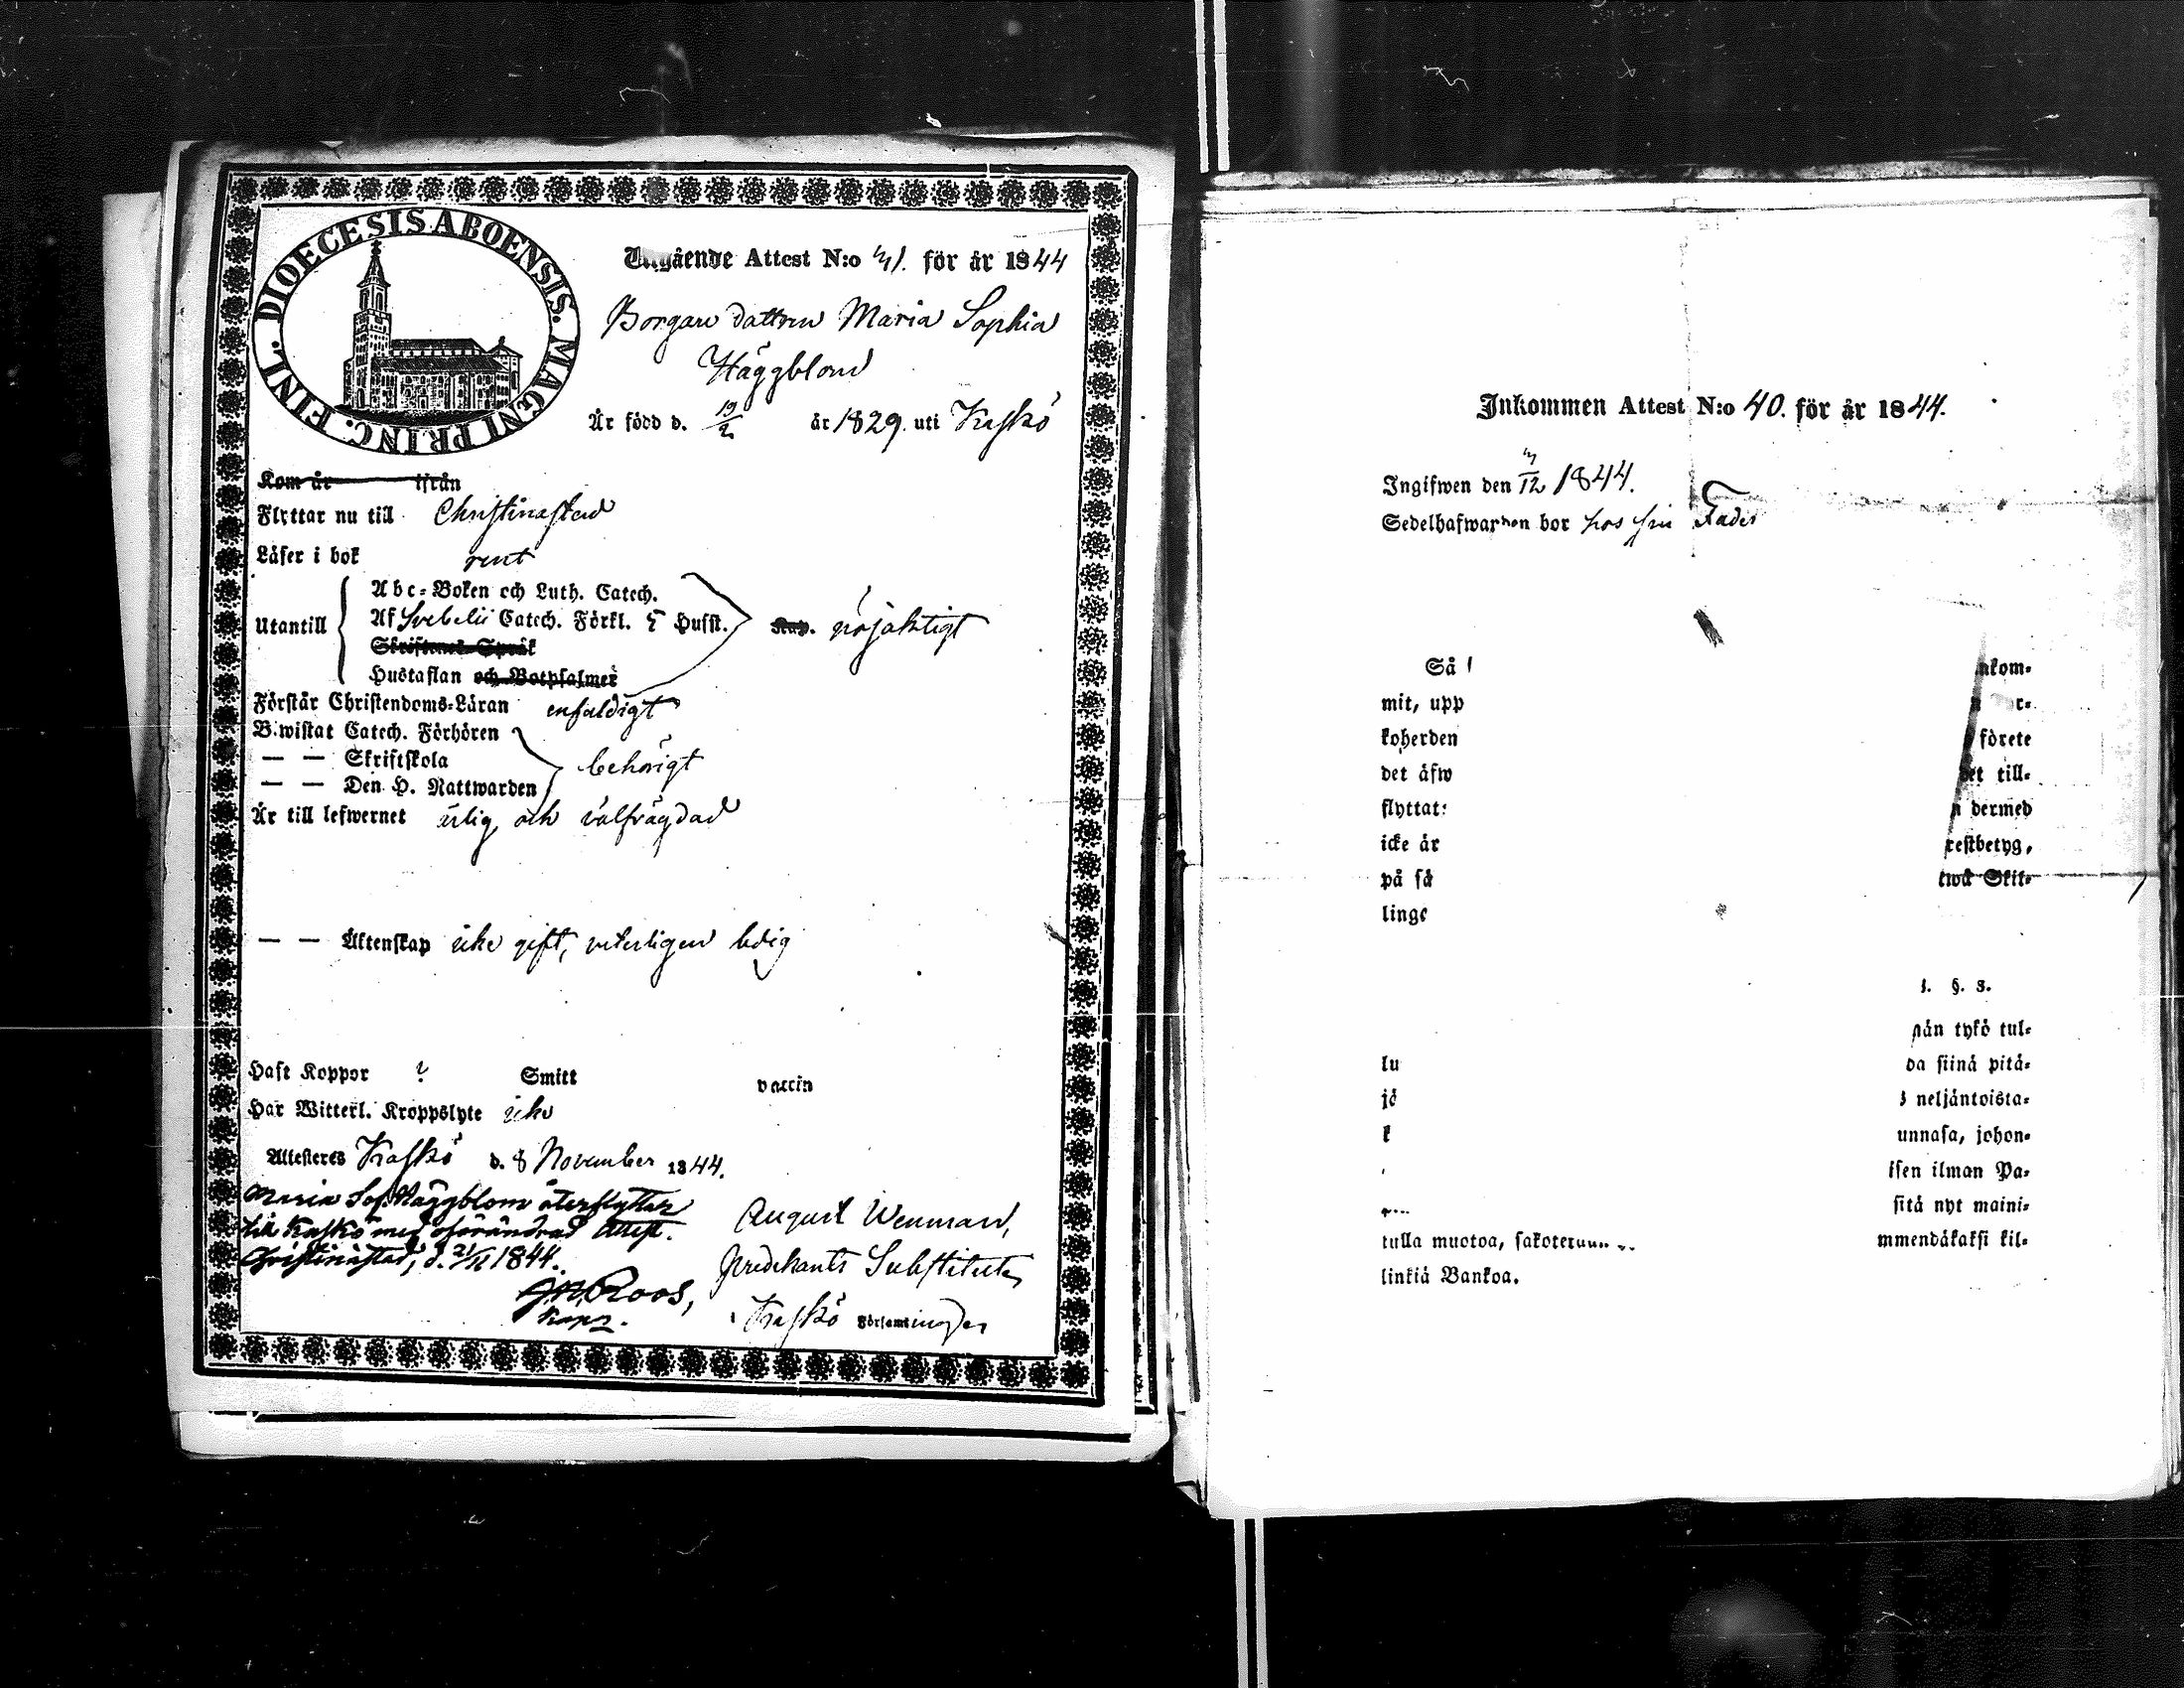 DIOECESIS ABOENSIS. MAGNI PRINC. FINL.
Utgående Attest N:o 41. för år 1844
Borgare dattren Maria Sophia
Häggblom
Är född d. 19/2 år 1829. uti Kaskö
Kom år ifrån
Flyttar nu till Christinastad
Läser i bok rent
Utantill
Abc-Boken och Luth. Catech.
Af Svebelii Catech. Förkl. Husst.
Skriftenes Språk
Hustaflan och Botpsalmer
Kap. nöjaktigt
Förstår Christendoms-Läran enfaldigt
Bewistat Catech. Förhören
— — Skriftskola
— — Den H. Nattwarden
behörigt
Är till lefwernet ärlig och välfrägdad
— — Äktenskap icke gift, veterligen ledig
Haft Koppor ? Smitt vaccin
Har Witterl. Kroppslyte icke
Attesteres Kaskö d. 8 November 1844.
Maria Sof. Häggblom återflyttar
till Kaskö med oförändrad attest.
Christinastad, d. 1844.
Roos,
Kapz.
August Wenman,
Predikants Substitut
Kaskö Församlinger
Inkommen Attest N:o 40. för år 1844.
Ingifwen den /12 1844.
Sedelhafwarden bor hos sin Fader
Så nkom-
mit, upp r-
koherden förete
det äfw det till-
flyttat n dermed
icke är restbetyg,
på så twå Skil-
linge
1. §. 3.
nän tykö tul-
lu da siinä pitä-
jä neljäntoista-
k unnasa, johon-
isen ilman Pa-
sitä nyt maini-
tulla muotoa, sakotetuu mmendäkaksi kil-
linkiä Bankoa.